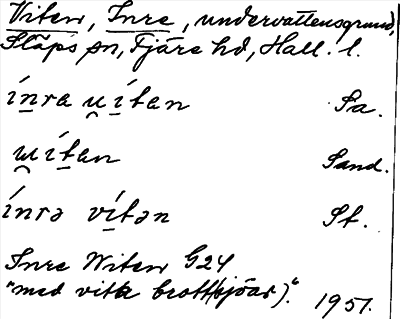 Viten, Inre, undervattensgrund,
Släps sn, Fjäre hd, Hall. l.
ínra u̯ítan Sa.
u̯ítan Sand.
ínrə vítən St.
Inre Witen G24
"med vita brott(sjöar)." 1951.